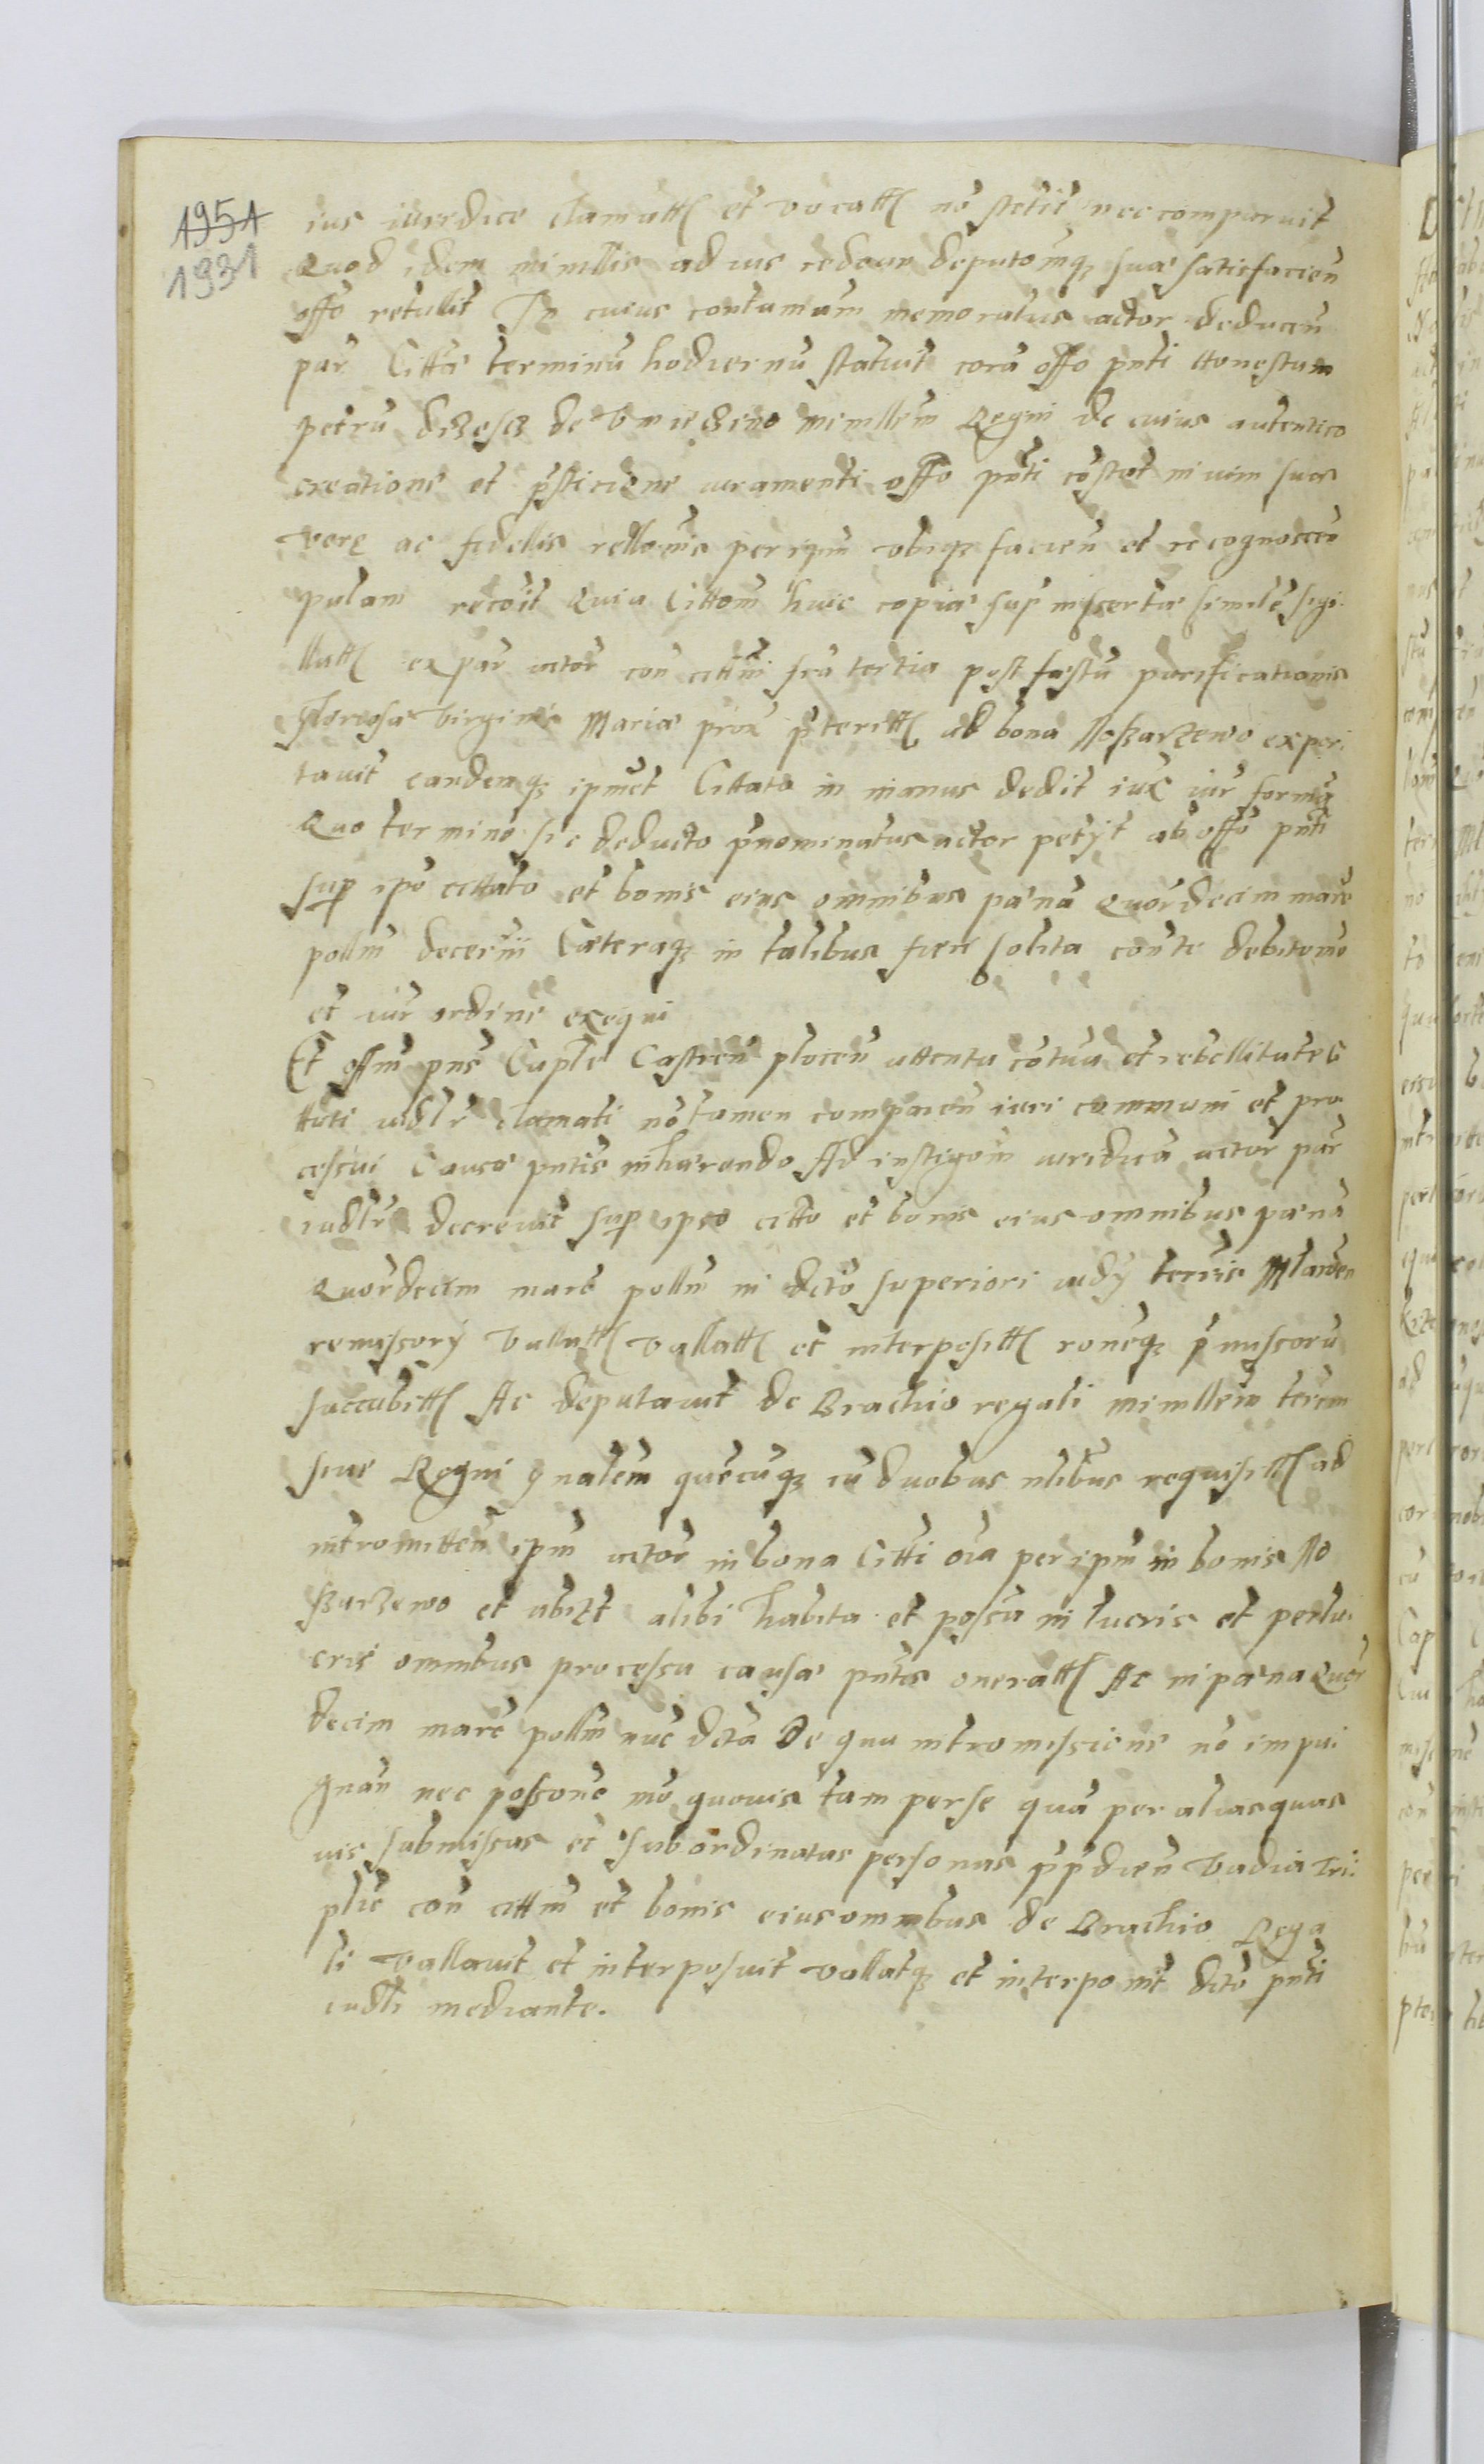 1951
1931
ius iuridice clamatt et vocatt nō stetit nec comparuit
Quod idem minrllis ad ius reddeñ deputōniq suæ satisfacieñ
offo retulit In cuius contumam memoratus actor deduceñ
par Citta terminū hodiernū statuit corā offo pñti Honestum
petrū de minrllem Regni de cuius autentico
creatione et psticione iuramenti offo pñti cōstat in vim suæ
verę ac fidellis rellōnis per ipm ubiq facieñ et recognosceñ
palam recōit Quia Cittōm huic copiæ sup inserta simile sigi
llatt ex par actor con cittm fra tertia post festū purificationis
gloriosæ Virginis Mariæ prox pteritt ad bona Noßarzewo expor
tavit eandemq ipmet Cittato in manus dedit iux iur formā
Quo termino sic deducto pnominatus actor petÿt ab offo pñti
sup ipō cittato et bonis eius omnibus pænā Quordecim marc
pollm decerni Cæteraq in talibus fieri solita con te debitōmo
et iur ordine exequi
Et offm pñs Captle Castreñ ploceñ attenta cōtua et rebellitate C
ttati iudlr clamati nō tamen compareñ iuri communi et pro
cessui Causæ pntis inhærendo Ad instigōm iuridicā actor par
iudlr decrevit sup ipso citto et bonis eius omnibus pænā
Quordecim marc pollm in dcto superiori iudÿ terris Mlaveñ
remissorÿ Vallatt vallatt et interpositt roneq pmissorū
succubitt Ac deputavit de Brachio regali minrllem terrm
sive Regni gnalem quēcuq cū duobus nlibus requisitt ad
intromitteñ ipm actor in bona Citti oia per ipm in bonis No
ßarzewo et ubizt alibi habita et possa in lucris et perlu
cris omnibus processu causæ pntis oneratt Ac in pæna Quor
decim marc pollm nuc dcta De qua intromissione nō impu
gnañ nec possone mō quovis tam per se quā per alias quas
vis submissas et subordinatas personas ppdieñ Vadia tri
plic con cittm et bonis eius omnibus de Brachio Rega
li vallavit et interposuit vallatq et interponit dcto pñti
iudli mediante.